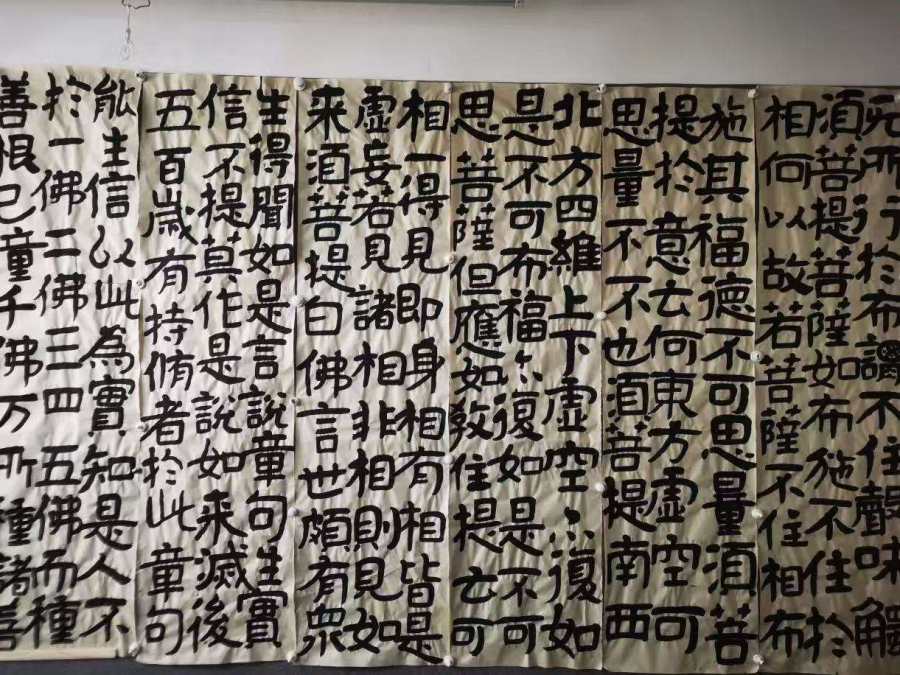 无所行於布謂不住聲味觸
須菩提菩薩如布施不住於
相何以故若菩薩不住相布
施其福德不可思量須菩
提於意云何東方虛空可
思量不不也須菩提南西
北方四維上下虛空〻復如
是不可布福〻復如是不可
思菩薩但應如教住提云可
相一得見即身相有相皆是
虛妄若見諸相非相則見如
来須菩提白佛言世頗有眾
生得聞如是言說章句生實
信不提莫作是說如来滅後
五百歲有持脩者於此章句
能生信以此為實知是人不
於一佛二佛三四五佛而種
善根已童千佛万所種諸善